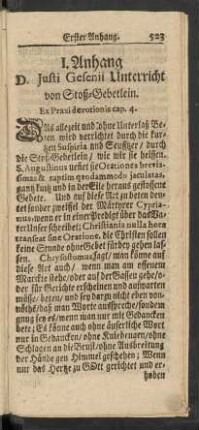 Erster Anhang. 523
I. Anhang
D. Justi Gesenii Unterricht
von Stoß-Gebetlein.
Ex Praxi devotionis cap. 4.
DAs allezeit und ohne Unterlaß Be-
ten wird verrichtet durch die kur-
tzen Suspiria und Seufftzer / durch
die Stoß-Gebetlein / wie wir sie heissen.
S. Augustinus nennet sie Orationes brevis-
simas & raptim quodammodo jaculatas,
gantz kurtz und in der Eile heraus gestossene
Gebete. Und auf diese Art zu beten deu-
tet sonder zweiffel der Märtyrer Cypria-
nus, wenn er in einer Predigt über das Va-
ter Unser schreibet: Christianis nulla hora
transeat sine Oratione, die Christen sollen
keine Stunde ohne Gebet fürbey gehen las-
sen. Chrysostomus sagt / man köñe auf
diese Art auch / wenn man am offenen
Marckte gehe / oder auf der Gassen gehe / o-
der für Gericht erscheinen und aufwarten
müsse / beten / und sey dazu nicht eben von-
nöthẽ / daß man Worte ausspreche / sondern
gnung sey es / wenn man nur mit Gedancken
bete; Es könne auch ohne äuserliche Wort
nur in Gedancken / ohne Kniebeugen / ohne
Schlagen an die Brust / ohne Ausbreitung
der Hände gen Himmel geschehen; Wenn
nur das Hertze zu GOtt gerichtet und er-
hoben